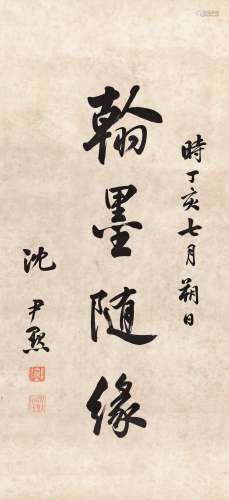 時丁亥七月朔日
翰墨随缘
沈尹默